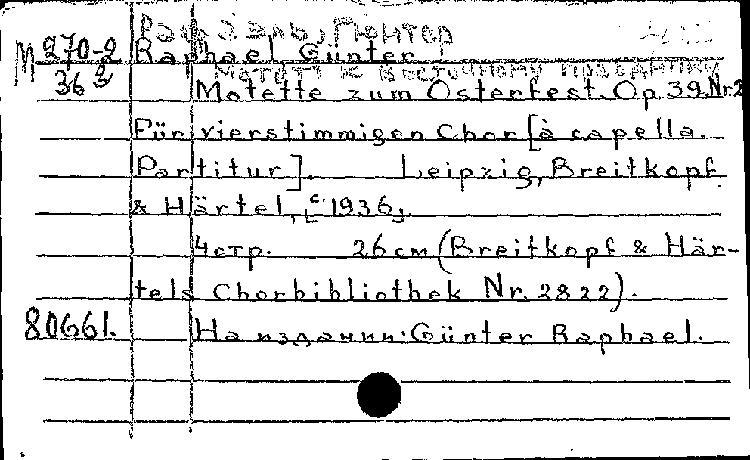 Рафаэль, Гюнтер
M 270-2 Raphael, Günter
Мотет к восточному празднику
36 3 Motette zum Osterfest. Op. 39, Nr. 2
Für vierstimmigen Chor [à capella.
Partitur]. Leipzig, Breitkopf
& Härtel, [c 1936].
4 стр. 26 см (Breitkopf & Här-
tels Chorbibliothek Nr. 2822).
80661. На издании: Günter Raphael.